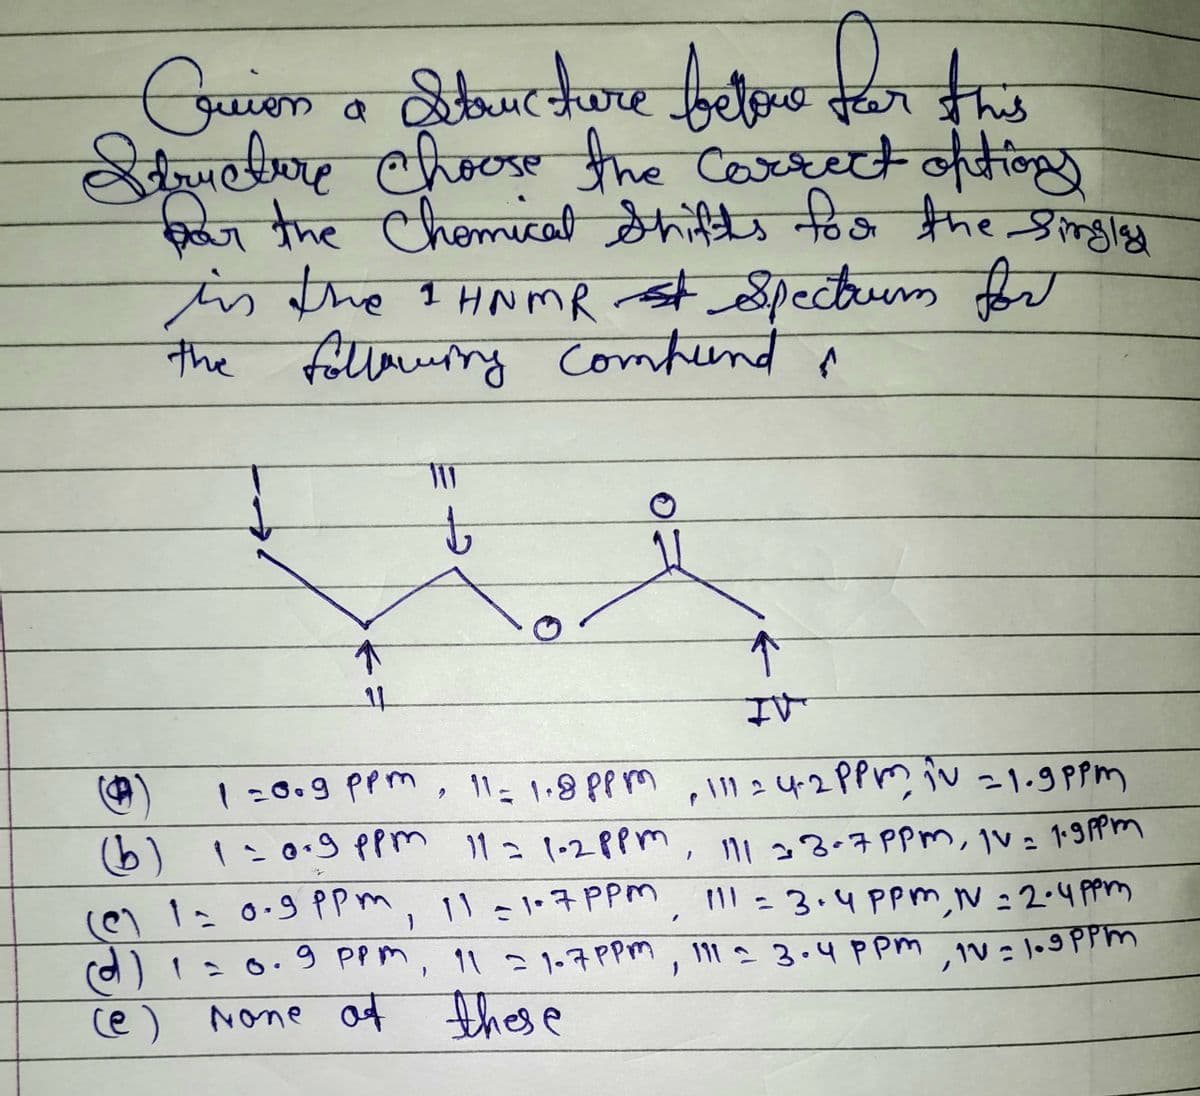 Given a Structure below for this
Structure choose the correct options
for the chemical shifts for the singles
in the 1 HNMR spectrum for
the following compund
III
O
O
II
IV
(a) I = 0.9 ppm, II = 1.8 ppm, III = 4.2 ppm, iv = 1.9 ppm
(b) I = 0.9 ppm II = 1.2 ppm, III = 3.7 ppm, IV = 1.9 ppm
(c) I = 0.9 ppm, II = 1.7 ppm, III = 3.4 ppm, IV = 2.4 ppm
(d) I = 0.9 ppm, II = 1.7 ppm, III = 3.4 ppm, IV = 1.9 ppm
(e) None of these